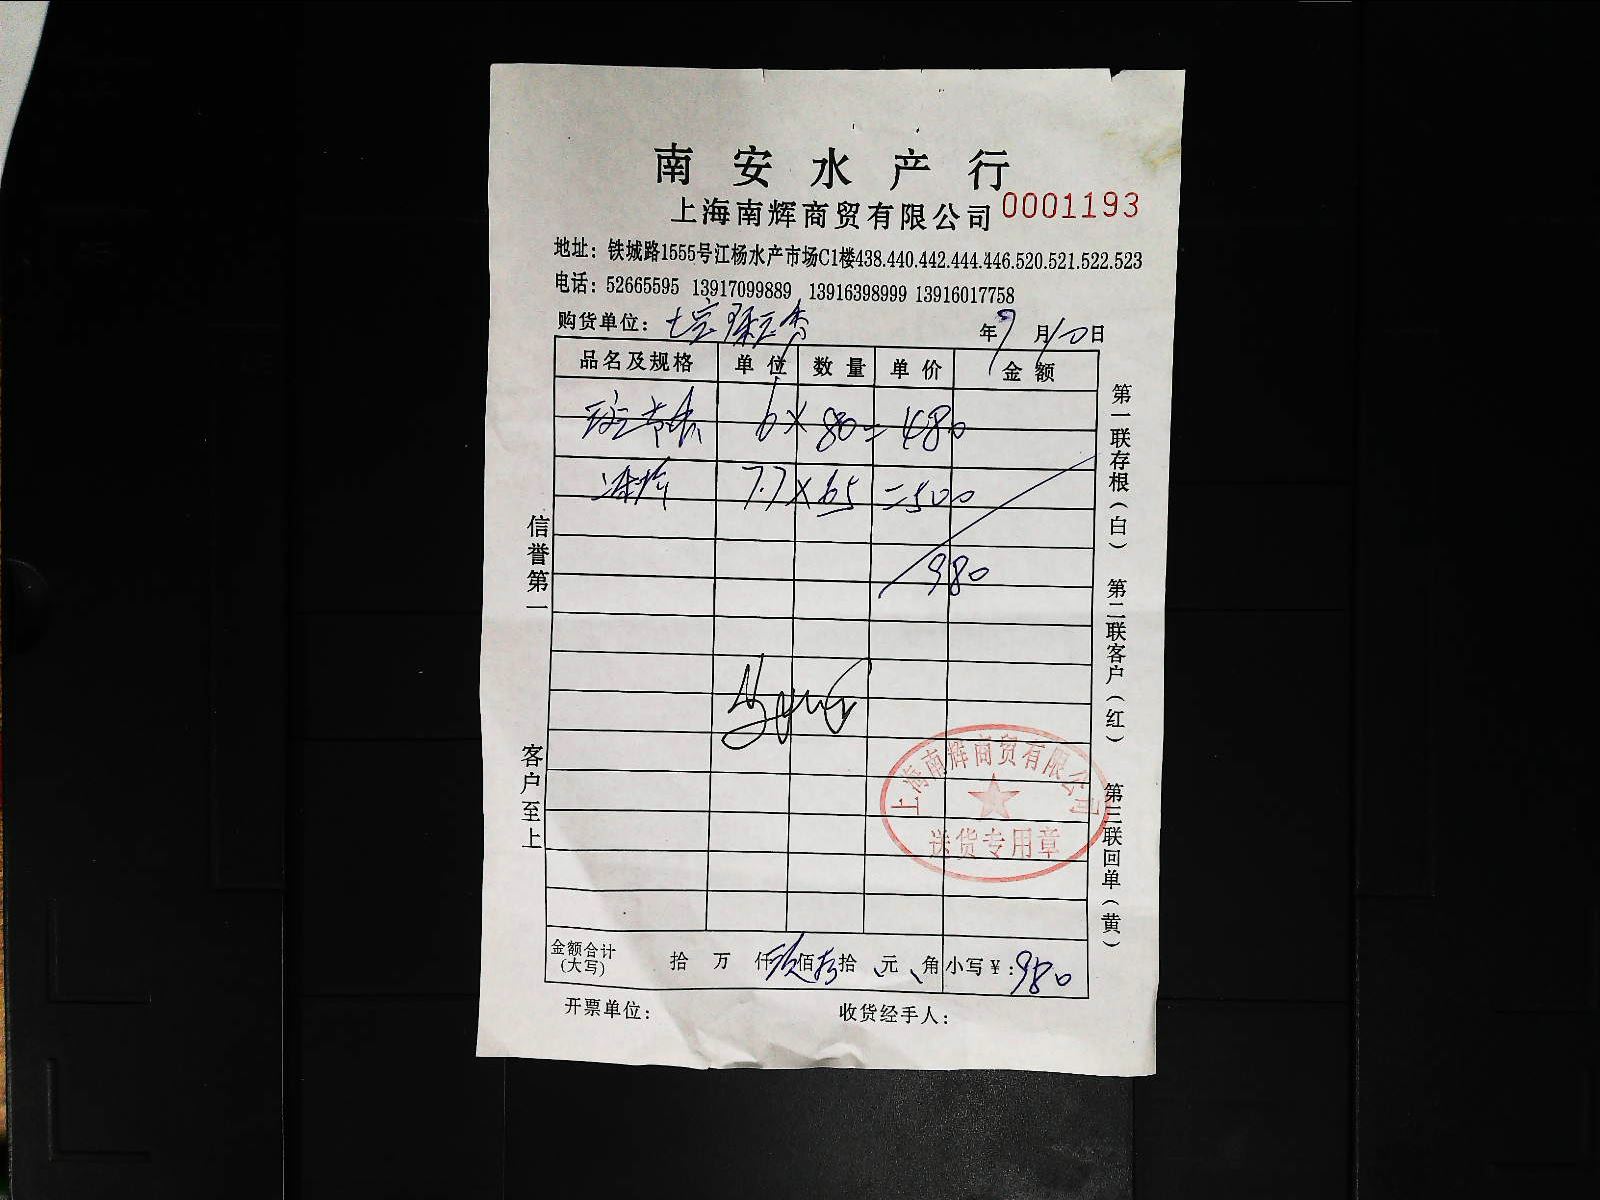 南安水产行
上海南辉商贸有限公司 0001193
地址：铁城路1555号江杨水产市场C1楼438.440.442.444.446.520.521.522.523
电话：52665595 13917099889 13916398999 13916017758
购货单位：
年9月10日
品名及规格 单位 数量 单价 金额
斑节 6×80=480
7.7×65=500
980
金额合计(大写) 拾 万 仟玖佰捌拾 元 角 小写￥:980
开票单位： 收货经手人：
信誉第一
客户至上
第一联存根（白） 第二联客户（红） 第三联回单（黄）
上海南辉商贸有限公司
送货专用章